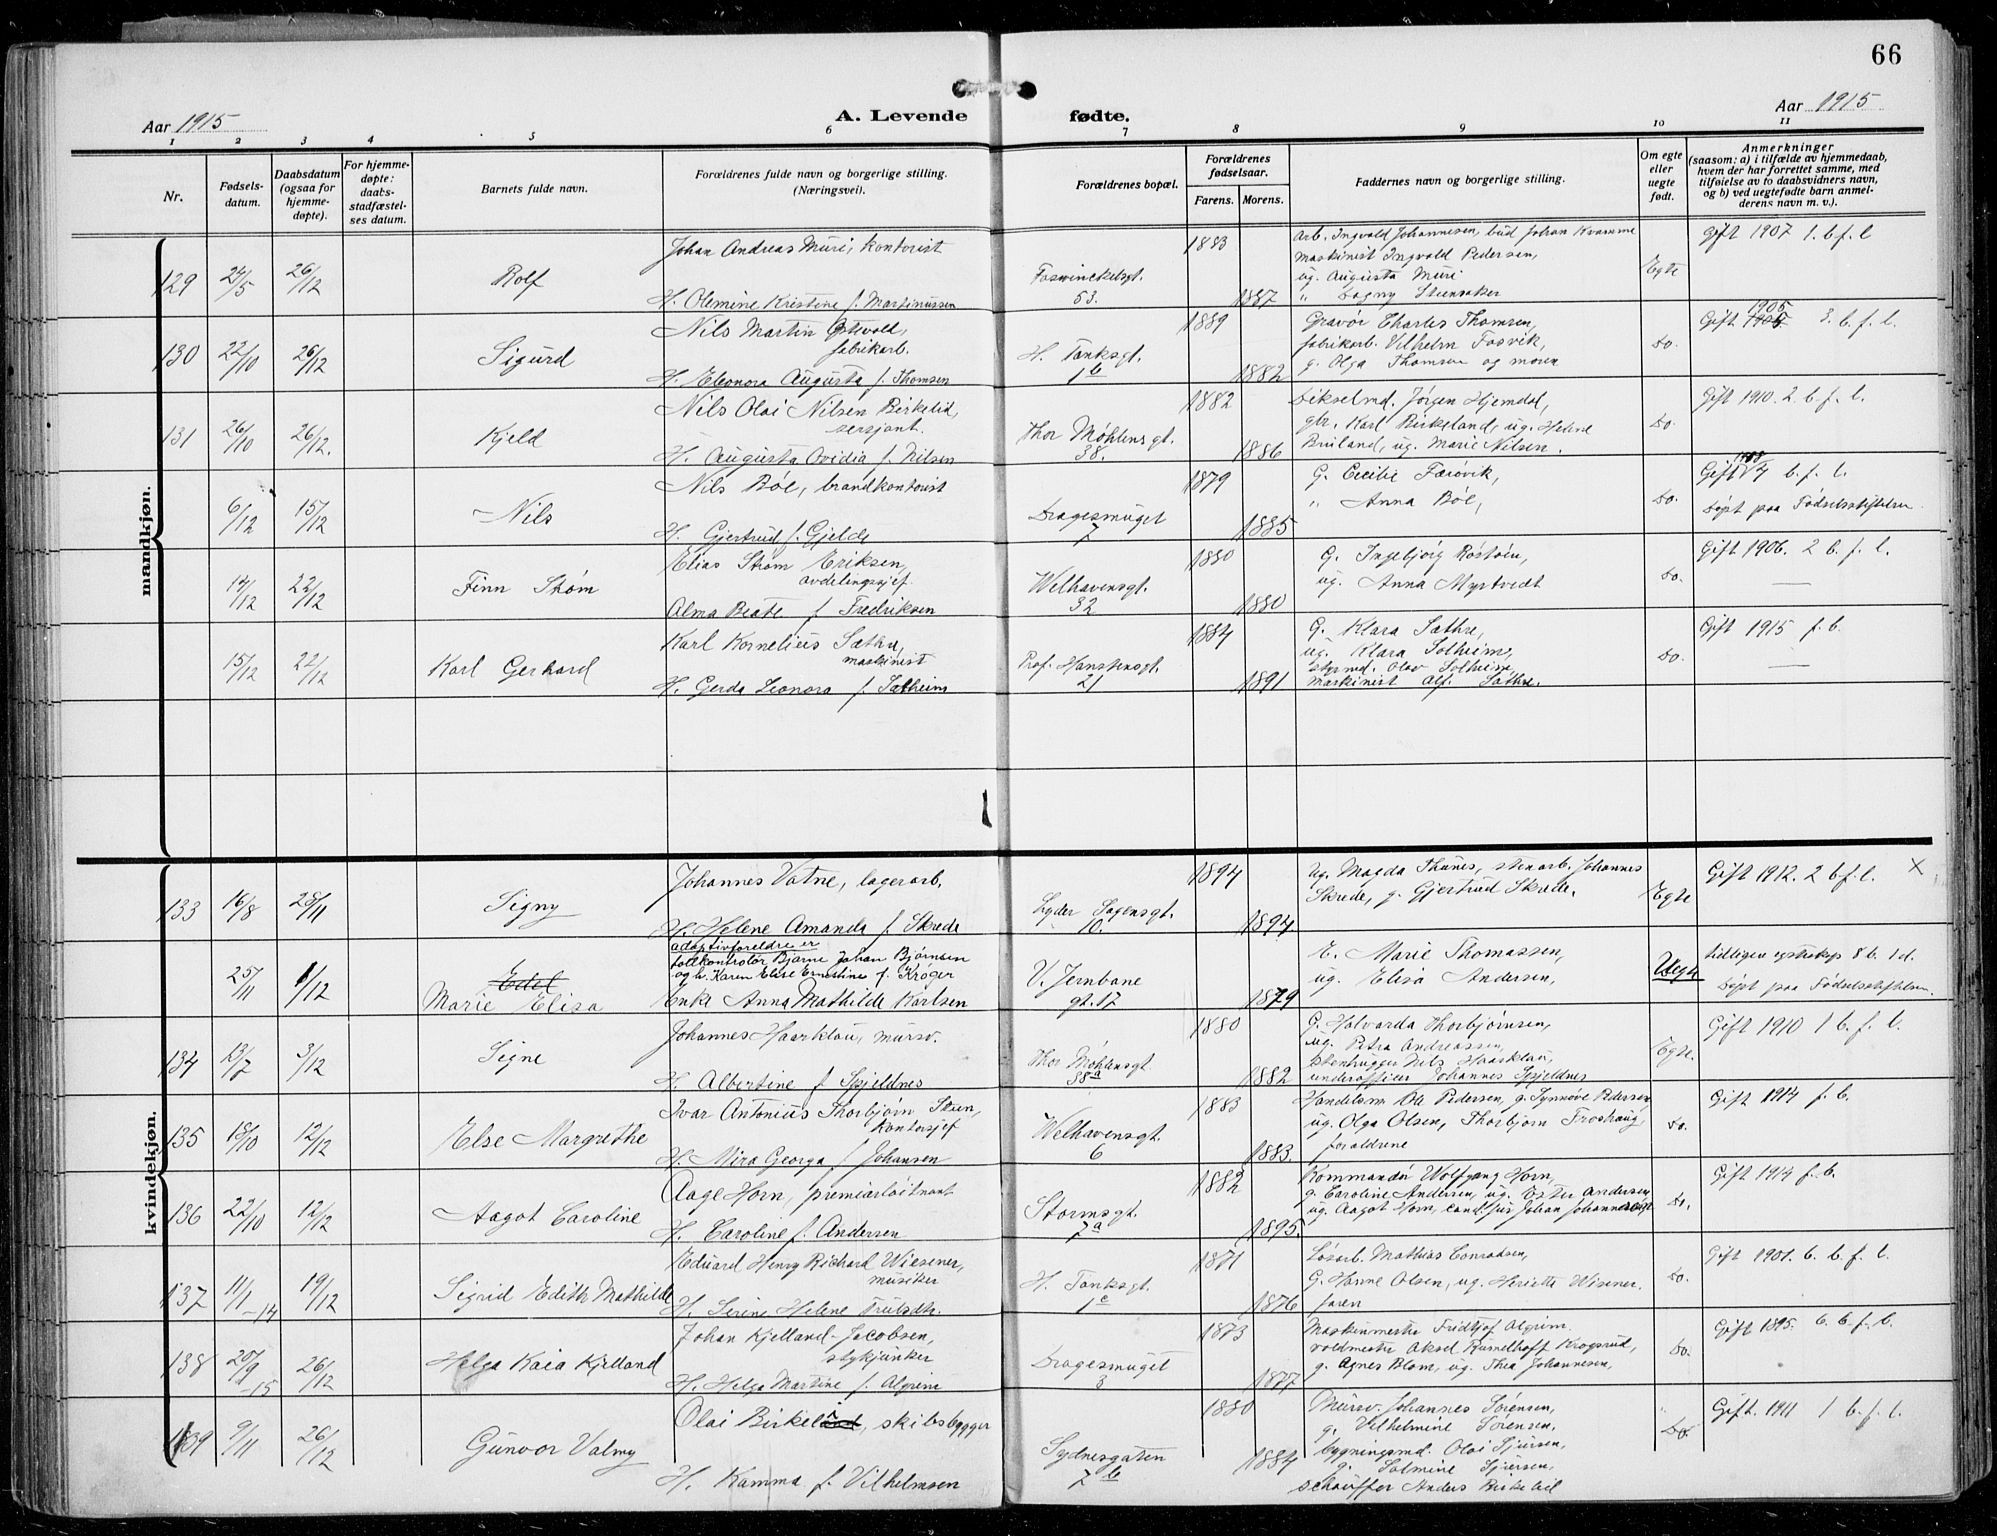 66
Aar 1915
A. Levende
fødte.
Aar 1915
1 2 3 4 5 6 7 8 9 10 11
Nr.
Fødsels-
datum.
Daabsdatum
(ogsaa for
hjemme-
døpte).
For hjemme-
døpte:
daabs-
stadfæstel-
ses datum.
Barnets fulde navn.
Forældrenes fulde navn og borgerlige stilling.
(Næringsvei).
Forældrenes bopæl.
Forældrenes
fødselsaar.
Farens. Morens.
Faddernes navn og borgerlige stilling.
Om egte
eller
uegte
født.
Anmerkninger
(saasom: a) i tilfælde av hjemmedaab,
hvem der har forrettet samme, med
tilføielse av to daabsvidners navn,
og b) ved uegtefødte barn anmel-
derens navn m. v.).
mandkjøn.
129 24/5 26/12 Rolf
Johan Andreas Muri, kontorist
H. Olemine Kristine f. Martinussen
Foswinckelsgt.
53.
1883
1887
Arb. Ingvald Johannesen, bud Johan Kvamme
maskinist Ingvald Pedersen,
ug. Augusta Muri
" Dagny Stensaker
Egte
Gift 1907 1. b. f. l
130 22/10 26/12 Sigurd
Nils Martin Østvold,
fabrikarb.
H. Eleonora Augusta f. Thomsen
H. Tanksgt.
1 b
1889
1882
Gravør Charles Thomsen,
fabrikarb. Vilhelm Fosvik,
g. Olga Thomsen og moren
Do.
1905
Gift 3. b. f. l.
131 26/10 26/12. Kjeld
Nils Olai Nilsen Birkelid,
sersjant.
H. Augusta Ovidia f. Nilsen
Thor Møhlens gt.
38.
1882
1886
Dikselmd. Jørgen Hjemdal,
gbr. Karl Birkeland, ug. Helene
Bruland, ug. Marie Nilsen.
Do.
Gift 1910. 2. b. f. l.
6/12 15/12 Nils
Nils Bøe, brandkontorist
H. Gjertrud f. Gjelde
Dragesmuget
7
1879
1885
G. Cecilie Farøvik,
" Anna Bøe,
Do.
Gift 4 b. f. l.
Døpt paa Fødselsstiftelsen.
14/12 22/12 Finn Strøm
Elias Strøm Eriksen,
avdelingssjef.
Alma Beate f. Fredriksen
Welhavensgt.
32
1880
1880
G. Ingebjørg Røstøen,
ug. Anna Myrtvedt
Do.
Gift 1906. 2 b. f. l.
15/12 22/12 Karl Gerhard
Karl Kornelius Sæthre,
maskinist
H. Gerda Leonora f. Sætheim
Prof. Hanstensgt.
21
1884
1891
G. Klara Sæthre,
ug. Klara Solheim,
styrmd. Olav Solheim,
maskinist Alf. Sæthre.
Do.
Gift 1915 f. b.
kvindekjøn.
133 16/8 28/11 Signy
Johannes Vatne, lagerarb.
H. Helene Amanda f. Skrede
Lyder Sagensgt.
10.
1894
1894
Ug. Magda Thunes, stenarb. Johannes
Skrede, g. Gjertrud Skrede.
Egte
Gift 1912. 2 b. f. l. X
25/11 1/12 Edel
Marie Elisa
adoptivforeldre er
tollkontrolør Bjarne Johan Bjørnsen
og h. Karen Elise Ernestine f. Krøger
Enke Anna Mathilde Karlsen
V. Jernbane
gt. 17
1879
E. Marie Thomassen,
ug. Elisa Andersen,
Uegte
tidligere egteskap 8 b. 1 d.
Døpt paa Fødselsstiftelsen.
134 13/7 3/12 Signe
Johannes Haarklau, mursv.
H. Albertine f. Skjeldnes
Thor Møhlensgt.
38 a
1880
1882
G. Halvarda Thorbjørnsen,
ug. Petra Andreassen,
stenhugger Nils Haarklau,
underofficer Johannes Skjeldnes
Egte.
Gift 1910 1 b. f. l.
135 18/10 12/12 Else Margrethe
Ivar Antonius Thorbjørn Steen,
kontorsjef
H. Mira Georga f. Johansen
Welhavensgt.
6
1883
1883.
Handelsm. Ole Pedersen, g. Synnøve Pedersen
ug. Olga Olsen, Thorbjørn Froshaug,
forældrene
Do.
Gift 1914 f. b.
136 22/10 12/12 Aagot Caroline
Aage Horn, premierløitnant
H. Caroline f. Andersen
Stormsgt.
7 a
1882
1895.
Kommandør Wolfgang Horn,
g. Caroline Andersen, ug. Ester Andersen
ug. Aagot Horn, cand. jur. Johan Johannessen
Do.
Gift 1914 f. b.
137 11/1 -14 19/12 Sigrid Edith Mathilde
Eduard Henry Richard Wiesener,
musiker
H. Serine Helene
H. Tanksgt.
1 c
1871
1876
Løsarb. Mathias Conradsen,
G. Hanne Olsen, ug. Henriette Wisener.
faren
Do.
Gift 1901. 6. b. f. l.
138 20/9 -15 26/12 Helga Kaia Kjelland
Johan Kjelland-Jacobsen,
stykjunker
H. Helga Martine f. Algrim
Dragesmuget
3
1873
1877
Maskinmester Fridtjof Algrim.
voldmester Aksel Rumelhoff Krogsrud,
g. Agnes Blom, ug. Thea Johannesen,
Do.
Gift 1895. 6. b. f. l.
139 9/11 26/12 Gunvor Valmy
Olai Birkeland, skibsbygger
H. Kamma f. Vilhelmsen
Sydnesgaten
7 b
1880
1884
Mursv. Johannes Sørensen,
g. Vilhelmine Sørensen,
bygningsmd. Olai Sjursen,
g. Salmine Sjursen,
schauffør Anders Birkeland
Do.
Gift. 1911 1 b. f. l.